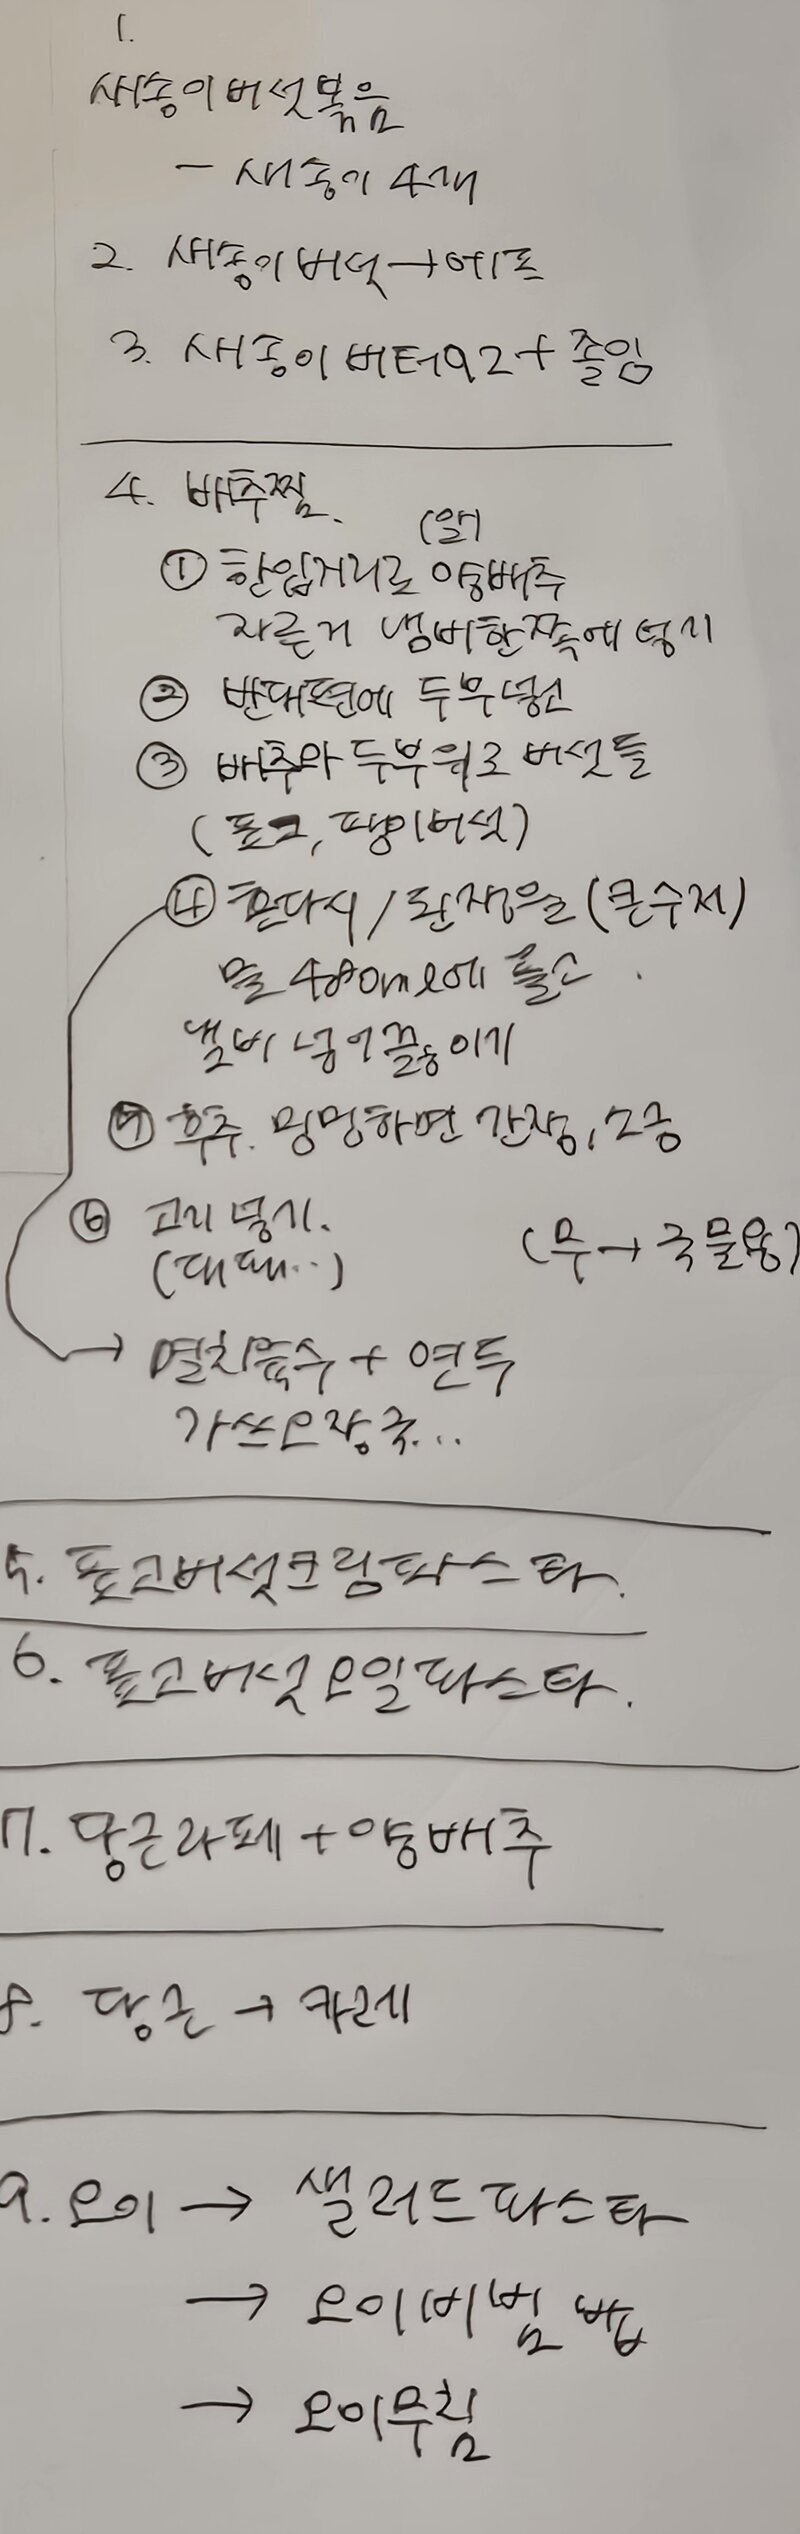 1.
새송이버섯볶음
- 새송이 4개
2. 새송이버섯→에프
3. 새송이버터구이+졸임
4. 배추찜.
(알)
① 한입거리로 양배추
자른거 냄비한쪽에 넣기
② 반대편에 두부넣고
③ 배추와 두부위로 버섯들
(표고, 팽이버섯)
④ 혼다시/된장을 (큰수저)
물 480ml에 풀고
냄비 넣어끓이기
⑤ 후추. 밍밍하면 간장, 소금
⑥ 고기 넣기.
(대패..)
(무→국물용)
→ 멸치육수 + 연두
가쓰오장국...
5. 표고버섯크림파스타.
6. 표고버섯오일파스타.
7. 당근라페+양배추
8. 당근→카레
9. 오이→ 샐러드파스타
→ 오이비빔밥
→ 오이무침